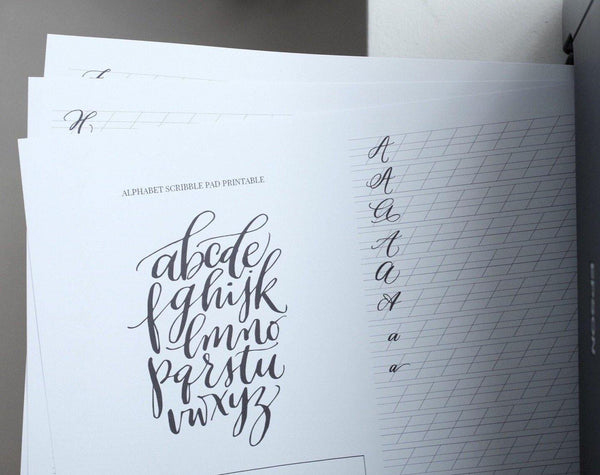 H
ALPHABET SCRIBBLE PAD PRINTABLE
abcde
fghijk
lmno
pqrstu
vwxyz
A
A
A
A
A
A
a
a
EPSON